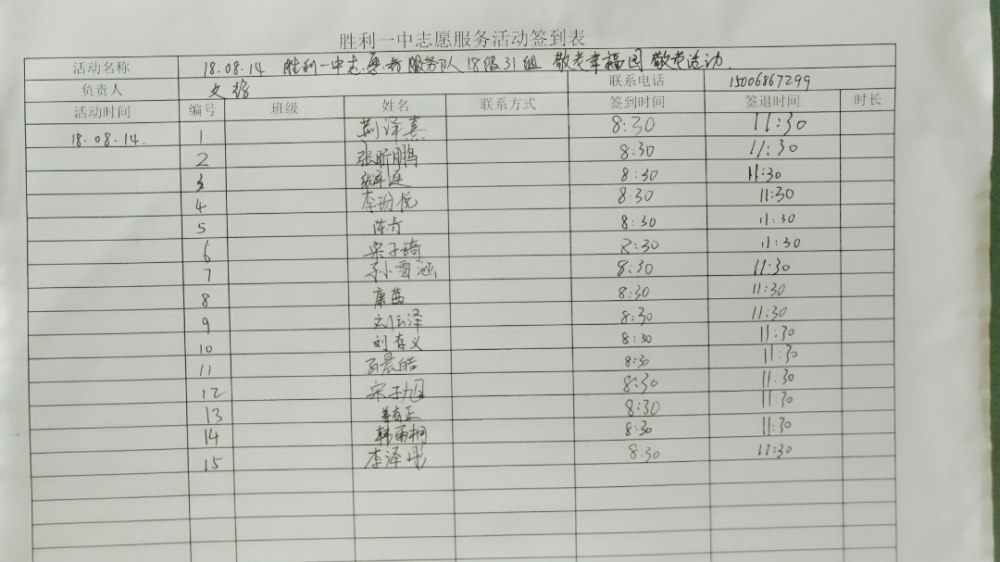 胜利一中志愿服务活动签到表
活动名称 18.08.14 胜利一中志愿者服务队18级31组 敬老幸福园 敬老活动.
负责人 联系电话 15006867299
活动时间 编号 班级 姓名 联系方式 签到时间 签退时间 时长
18.08.14. 1 荆泽熹 8:30 11:30
2 张昕鹏 8:30 11:30
3 8:30 11:30
4 李玢悦 8:30 11:30
5 陈卉 8:30 11:30
6 宋子琦 8:30 11:30
7 孙雪涵 8:30 11:30
8 康茜 8:30 11:30
9 刘沄泽 8:30 11:30
10 刘春义 8:30 11:30
11 晨皓 8:30 11:30
12 宋子旭 8:30 11.30
13 8:30 11:30
14 韩雨桐 8:30 11:30
15 李泽彤 8.30 11:30